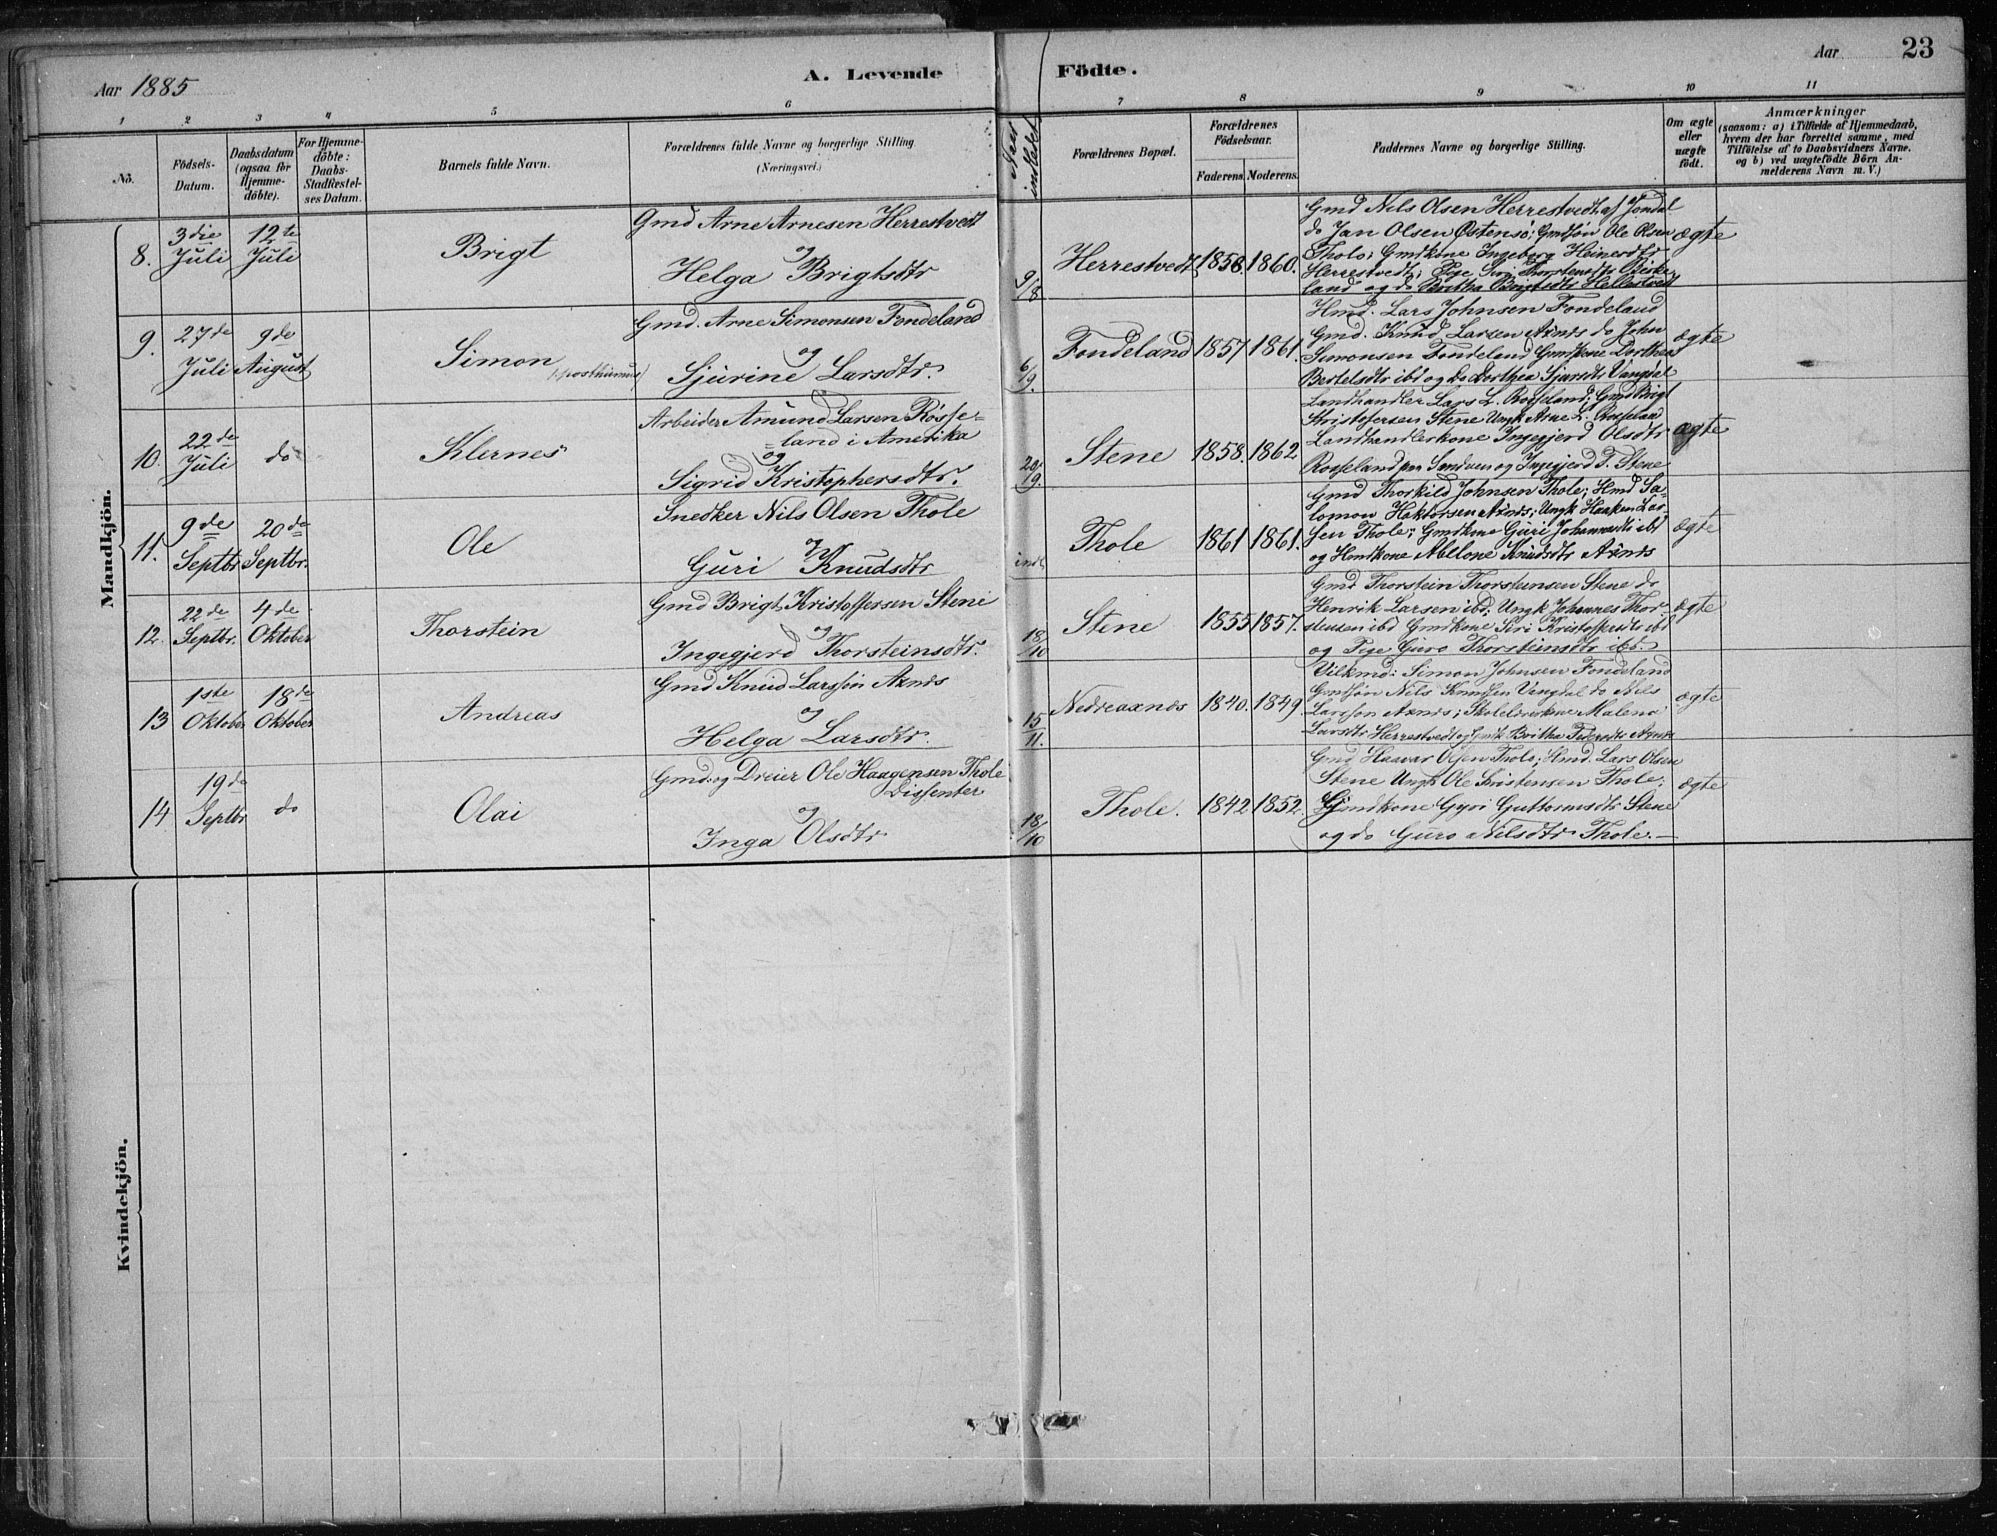 Aar 1885
A. Levende
Födte.
Aar
23
1
2
3
4
5
6
7
8
9
10
11
No.
Födsels-
Datum.
Daabsdatum
(ogsaa for
Hjemme-
döbte).
For Hjemme-
döbte:
Daabs-
Stadfæstel-
ses Datum.
Barnets fulde Navn.
Forældrenes fulde Navne og borgerlige Stilling
(Næringsvei.)
Naar
indledet
Forældrenes Bopæl.
Forældrenes
Födselsaar.
Faderens.
Moderens.
Faddernes Navne og borgerlige Stilling.
Om ægte
eller
uægte
födt.
Anmærkninger
(saasom: a) i Tilfælde af Hjemmedaab,
hvem der har forrettet samme, med
Tilföielse af to Daabsvidners Navne.
og b) ved uægtefödte Börn An-
melderens Navn m. V.)
Mandkjön.
8.
3die
Juli
12te
Juli
Brigt
Gmd Arne Arnesen Herrestvedt
og
Helga Brigtsdtr
9/8
Herrestvedt
1858.
1860.
Gmd Nils Olsen Herrestvedt af Jondal
do Jan Olsen Østensö; Gmdsön Ole Olsen
Tholo; Gmdkone Ingeborg Heinersdtr
Herrestvedt; Pige Siri Thorsteinsdtr
land og do Bertha Brigtsdtr Hellestvedt
ægte
9.
27de
Juli
9de
August
Simon
(posthumus)
Gmd. Arne Simonsen Fondeland
og
Sjurine Larsdtr.
6/9.
Fondeland
1857
1861.
Hmd. Lars Johnsen Fondeland
Gmd. Knud Larsen Axnes do John
Simonsen Fondeland Gmdkone Dorthea
Bertelsdtr ibd og do Dorthea Sjursdtr Vangdal
ægte
10.
22de
Juli
do
Klernes
Arbeider Amund Larsen Rösse-
land i Amerika
og
Sigrid Kristophersdtr.
20/9.
Stene
1858.
1862.
Landhandler Lars L. Rosseland; Gmd Brigt
Kristofersen Stene Ungk Arne L. Rosseland
Landhandlerkone Ingegjerd Olsdtr
Rosseland paa Sandven og Ingegjerd T. Stene
ægte
11.
9de
Septbr
20de
Septbr.
Ole
Snedker Nils Olsen Thole
og
Guri Knudsdtr
indl
Thole
1861
1861.
Gmd Thorkild Johnsen Thole; Hmd Sa-
lomon Haktorsen Axnes; Ungk Haaken Lar-
sen Thole; Gmdkone Guri Johannesdtr ibd
og Hmdkone Abelone Knudsdtr Axnes
ægte
12.
22de
Septbr.
4de
Oktober
Thorstein
Gmd Brigt Kristoffersen Stene
og
Ingegjerd Thorsteinsdtr.
18/10
Stene
1855
1857.
Gmd Thorstein Thorsteinsen Stene do
Henrik Larsen ibd; Ungk Johannes Thor-
steinsen ibd Gmdkone Siri Kristoffersdtr ibd
og Pige Guro Thorsteinsdtr ibd.
ægte
13
1ste
Oktober
18de
Oktober
Andreas
Gmd Knud Larssön Axnes
og
Helga Larsdtr.
15/11.
Nedreaxnes
1840.
1849
Vilkmd: Simon Johnsen Fondeland
Gmdsön Nils Knudsen Vangdal do Nils
Larssön Axnes; Malena
Larsdtr Herrestvedt og Gmk Britha Pedersdtr Axnes
ægte
14
19de
Septbr
do
Olai
Gmd. og Dreier Ole Haagensen Thole
Dissenter
og
Inga Olsdtr
18/10
Thole.
1842
1852.
Gmd Haavar Olsen Tholo; Hmd. Lars Olsen
Stene Ungk Ole Kristensen Thole;
Gmdkone Gyri Guttormsdtr Stene
og do Guro Nilsdtr Thole.
ægte
Kvindekjön.